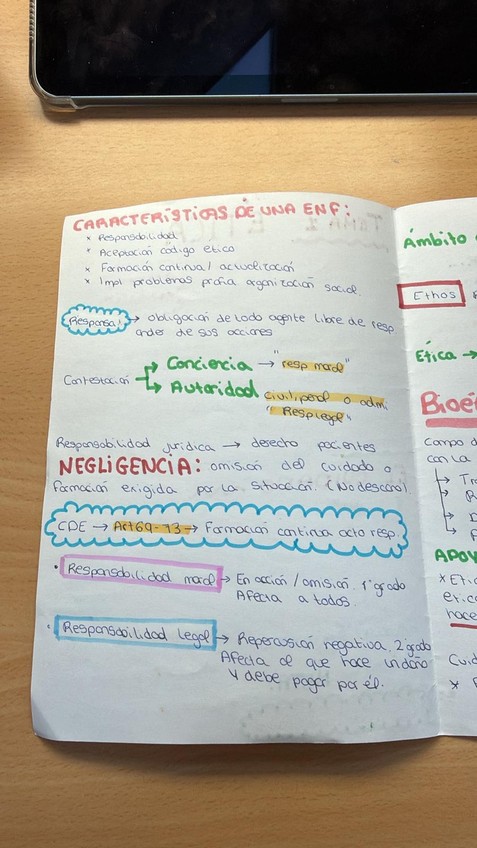 CARACTERÍSTICAS DE UNA ENF:
× Responsabilidad
× Aceptación código etico
× Formación continua / actualización
× Impl problemas profia organización social.
Responsa: → obligación de todo agente libre de resp
onder de sus acciones
Contestación → Conciencia → "resp moral"
→ Autoridad civil, penal o adm.
"Resp legal"
Responsabilidad jurídica → derecho pacientes
NEGLIGENCIA: omisión del cuidado o
formación exigida por la situación. (No descono).
CDE → Art 69-73 → Formación continua acto resp.
• Responsabilidad moral → En acción / omisión. 1º grado
Afecta a todos.
• Responsabilidad Legal → Repercusión negativa. 2º grado
Afecta al que hace un daño
y debe pagar por él.
Ámbito
Ethos
Ética →
Bioé
Campo d
con la
→ Tr
→
→
→
APOY
× Eti
etic
hace
Cuid
×